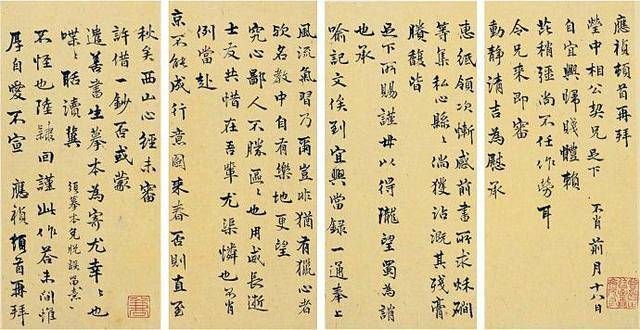 應禎頓首再拜
瑩中相公契兄足下 不肖前月十八日
自宜興歸賤體賴
芘稍 尚不任作勞耳
令兄來即審
動靜清吉為慰承
惠紙領次慚感前書所求秣磵
等集私心縣〻倘獲沾溉其殘膏
賸馥皆
足下所賜謹毋以得隴望蜀為誚
也承
喻記文俟到宜興當錄一通奉上
風流氣習乃爾豈非猶有獵心者
欤名教中自有樂地更望
究心鄙人不勝區〻也用威長逝
士友共惜在吾輩尤 憐也不肖
例當赴
京不能成行意圖來春否則直至
秋矣西山心經未審
許借一鈔否或蒙
遣善書生摹本為寄尤幸〻也
喋〻聒瀆冀 須摹本免脫誤留意〻
不怪也陸隸回謹此作答未間惟
厚自愛不宣 應禎頓首再拜